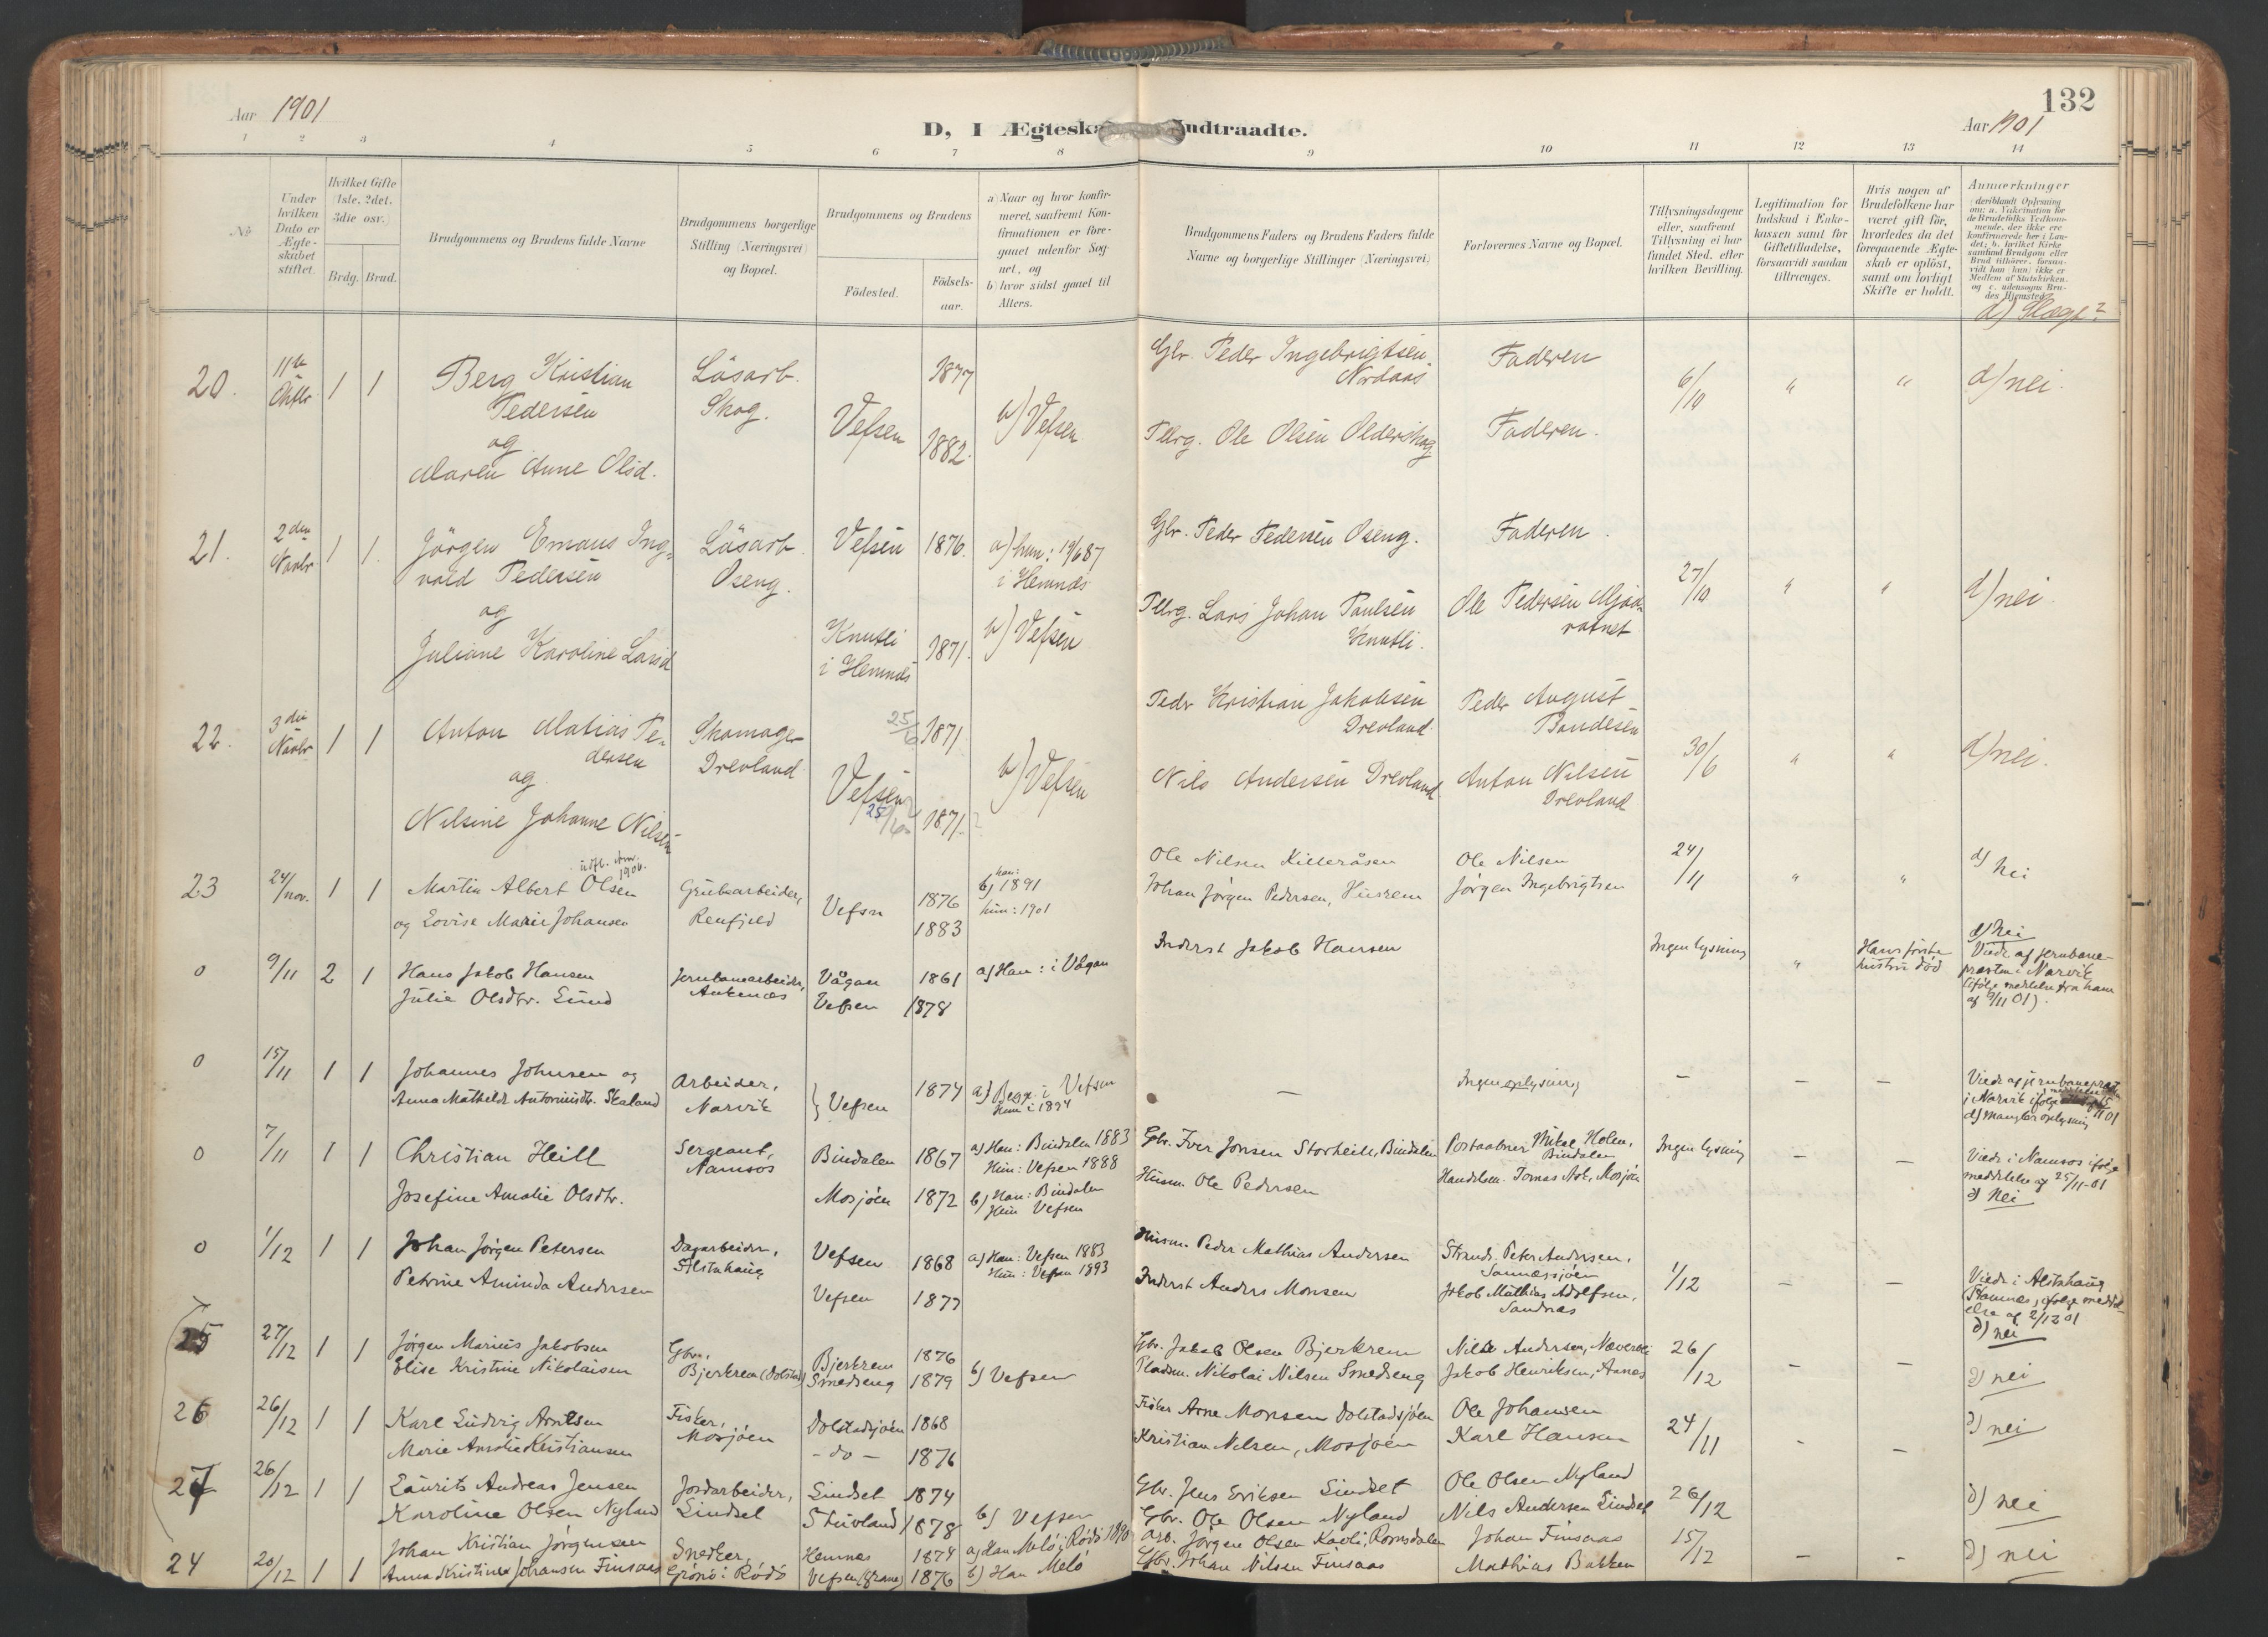 132
Aar 1901
D, I Ægteska ndtraadte.
Aar 1901
1 2 3 4 5 6 7 8 9 10 11 12 13 14
No.
Under hvilken Dato er Ægteskabet stiftet.
Hvilket Gifte (1ste, 2det, 3die osv.)
Brdg. Brud.
Brudgommens og Brudens fulde Navne
Brudgommens borgerlige Stilling (Næringsvei) og Bopæl.
Brudgommens og Brudens
Födested.
Födsels-aar.
a) Naar og hvor konfirmeret, saafremt Konfirmationen er foregaaet udenfor Sognet, og
b) hvor sidst gaaet til Alters.
Brudgommens Faders og Brudens Faders fulde Navne og borgerlige Stillinger (Næringsvei)
Forlovernes Navne og Bopæl.
Tillysningsdagene eller, saafremt Tillysning ei har fundet Sted, efter hvilken Bevilling.
Legitimation for Indskud i Enkekassen samt for Giftetilladelse, forsaavidt saadan tiltrænges.
Hvis nogen af Brudefolkene har været gift för, hvorledes da det foregaaende Ægteskab er oplöst, samt om lovligt Skifte er holdt.
Anmærkninger
(deriblandt Oplysning om: a. Vakcination for de Brudefolks Vedkommende, der ikke ere konfirmerede her i Landet; b. hvilket Kirkesamfund Brudgom eller Brud tilhörer, forsaavidt han (hun) ikke er Medlem af Statskirken, og c. udensogns Brudes Hjemsted
d) Slægt?
20. 11te Oktbr 1 1 Berg Kristian Pedersen Lösarb. Skog. 1877 Gbr. Peder Ingebrigtsen Nordaas Faderen 6/10 " " d) nei.
og
Maren Anne Olsd. Vefsen 1882. b) Vefsen Pllrg. Ole Olsen Olderskog Faderen.
21. 2den Novbr 1 1. Jörgen Emaus Ingvald Pedersen Lösarb. Oseng. Vefsen 1876. a) hun: 19/6 87 i Hemnæs Gbr. Peder Pedersen Oseng. Faderen. 27/10 " " d) nei.
og
Juliane Karoline Larsd Knutli i Hemnæs 1871. b) Vefsen Pllrg. Lars Johan Paulsen Knutli. Ole Pedersen Mjaavatnet
22. 3die Novbr 1 1 Anton Matias Pedersen Skomager Drevland 25/6 1871 Peder Kristian Jakobsen Drevland Peder August Bendesen 30/6 " " d) nei.
og
Nilsine Johanne Nilsen Vefsen 25/6 1871. b) Vefsen Nils Andersen Drevland Anton Nilsen Drevland
23 24/nov. 1 1 Martin Albert Olsen udfl. Am. 1906. Grubearbeider, Renfjeld Vefsn 1876 b) han: 1891 Ole Nilsen Killeråsen Ole Nilsen 24/11 " " d) Nei
og Lovise Marie Johansen 1883 hun: 1901 Johan Jørgen Pedersen, Husrem Jørgen Ingebrigtsen
0 9/11 2 1 Hans Jakob Hansen Jernbanearbeider, Ankenæs Vågan 1861 a) Han: i Vågan Inderst Jakob Hansen Ingen lysning " Hans første hustru død d) Nei Viede af jernbanepræsten i Narvik (ifølge meddelelse fra ham af 9/11 01).
Julie Olsdtr. Lund Vefsen 1878
0 15/11 1 1 Johannes Johnsen og Arbeider, Narvik } Vefsen 1874 a) Begge i Vefsen Hun i 1894 – Ingen oplysning – – – Viede af jernbanepræst i Narvik ifølge 15/11 01
Anna Mathilde Antoniusdtr. Skaland d) mangler oplysning
0 7/11 1 1 Christian Heill Sergeant, Namsos Bindalen 1867 a) Han: Bindalen 1883 Hun: Vefsen 1888 Gbr. Iver Jonsen Storheill, Bindalen Postaabner Mikal Holm, Bindalen Ingen lysning – – Viede i Namsos ifølge meddelelse af 25/11-01
Josefine Amalie Olsdtr. Mosjöen 1872 b) Han: Bindalen Hun Vefsen Husm. Ole Pedersen Handelsm. Tomas Ask, Mosjöen d) Nei
0 1/12 1 1 Johan Jörgen Petersen Dagarbeider, Alstahaug Vefsen 1868 a) Han: Vefsen 1883 Hun: Vefsen 1893 Husm. Peder Mathias Andersen Strands. Peter Andersen, Sannæssjöen 1/12 – – Viede i Alstahaug, Stamnes, ifølge meddelelse af 2/12 01
Petrine Aminda Andersen Vefsen 1877 Inderst Anders Monsen Jakob Mathias Adolfsen, Sandnæs d) nei
25 27/12 1 1 Jørgen Marius Jakobsen Gbr. Bjerkrem (Dolstad) Bjerkrem 1876 Gbr. Jakob Olsen Bjerkrem Nils Andersen, Næverli 26/12 – – d) nei
Elise Kristine Nikolaisen Smedseng 1879 b) Vefsen Pladsm. Nikolai Nilsen Smedseng Jakob Henriksen, Aanes
26 26/12 1 1 Karl Ludvig Arntsen Fisker, Mosjöen Dolstadsjöen 1868 Fisker Arne Monsen Dolstadsjöen Ole Johansen 24/11 – – d) nei
Marie Amalie Kristiansen – do – 1876 Kristian Nilsen, Mosjöen Karl Hansen
27 26/12 1 1 Laurits Andreas Jensen Jordarbeider, Lindset Lindset 1874 Gbr. Jens Eriksen Lindset Ole Olsen Nyland 26/12 d) nei
Karoline Olsen Nyland Stuvland 1878 b) Vefsen Gbr. Ole Olsen Nyland Nils Andersen Lindset
24 20/12 1 1 Johan Kristian Jørgensen Snedker, Grönö i Rödö Hemnes 1874 a) Han Melö i Rödö 1890 Arb. Jørgen Olsen Kavli, Romsdalen Johan Finsaas 15/12 – – d) nei
Anna Kristine Johansen Finsaas Vefsen (Grane) 1876 b) Han Melö Gbr. Johan Nilsen Finsaas Mathias Bakken